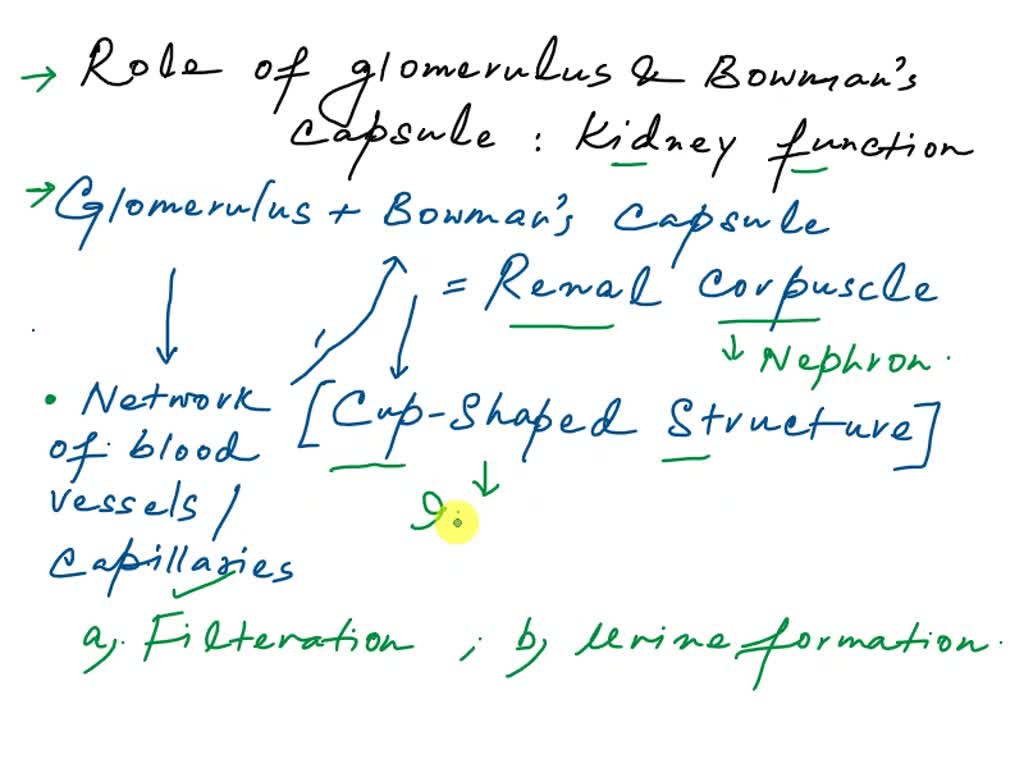 → Role of glomerulus & Bowman's
capsule : Kidney function
→ Glomerulus + Bowman's capsule
= Renal corpuscle
↓ Nephron.
• Network
of blood
vessels /
capillaries
[Cup-Shaped Structure]
a). Filteration ; b) Urine formation.